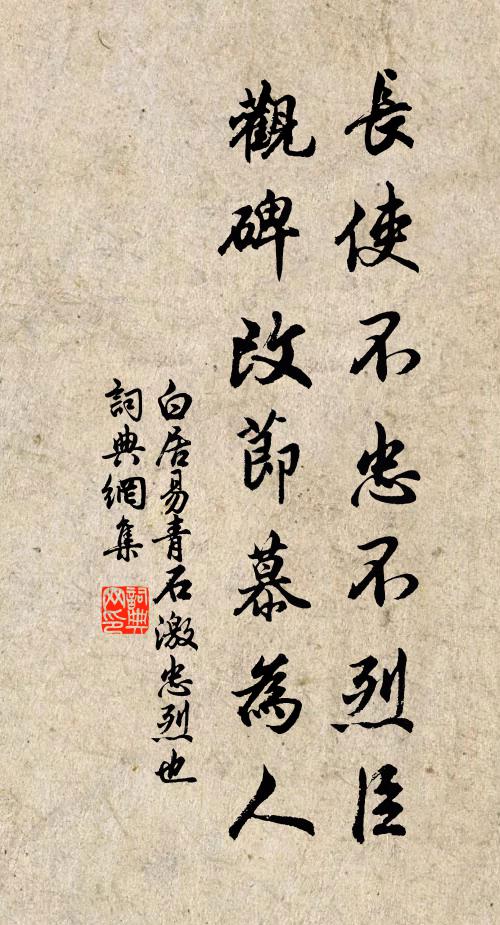 長使不忠不烈臣
觀碑改節慕為人
白居易青石激忠烈也
詞典網集
詞典
网印